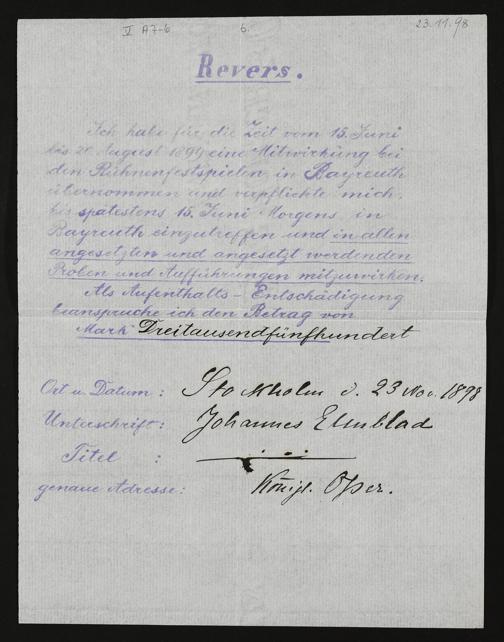 V A7-6 6. 23.11.98
Revers.
Ich habe für die Zeit vom 15. Juni
bis 20. August 1899 eine Mitwirkung bei
den Bühnenfestspielen in Bayreuth
übernommen und verpflichte mich,
bis spätestens 15. Juni Morgens in
Bayreuth einzutreffen und in allen
angesetzten und angesetzt werdenden
Proben und Aufführungen mitzuwirken.
Als Aufenthalts-Entschädigung
beanspruche ich den Betrag von
Mark Dreitausendfünfhundert
Ort u. Datum : Stockholm d. 23 Nov. 1898
Unterschrift: Johannes Elmblad
Titel :
genaue Adresse: Königl. Oper.